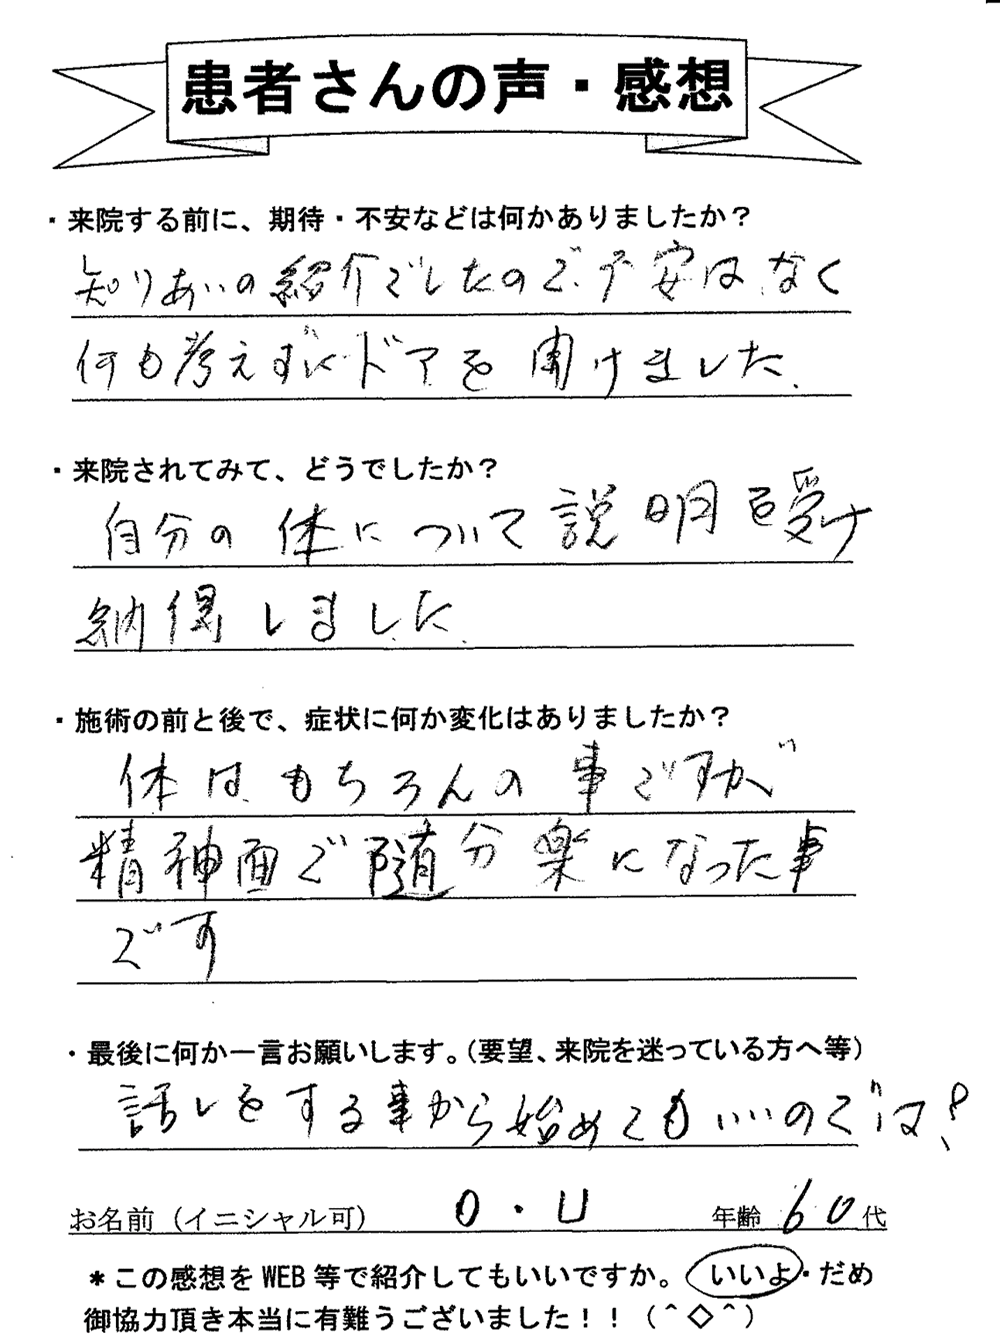 患者さんの声・感想
・来院する前に、期待・不安などは何かありましたか？
知りあいの紹介でしたので、不安はなく
何も考えずにドアを開けました.
・来院されてみて、どうでしたか？
自分の体について説明を受け
納得しました.
・施術の前と後で、症状に何か変化はありましたか？
体はもちろんの事ですが
精神面で随分楽になった事
です
・最後に何か一言お願いします。（要望、来院を迷っている方へ等）
話しをする事から始めてもいいのでは？
お名前（イニシャル可） O・U 年齢 60代
＊この感想をWEB等で紹介してもいいですか。 いいよ・だめ
御協力頂き本当に有難うございました！！（＾◇＾）